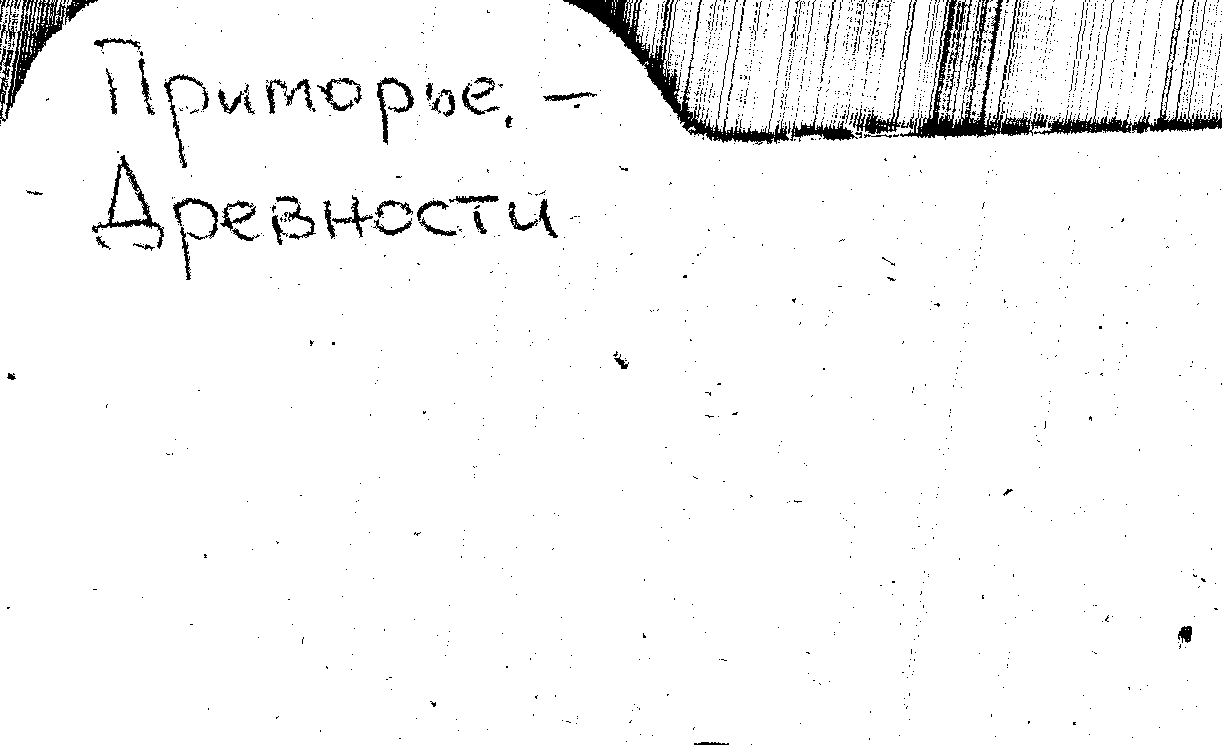 Приморье. –
Древности